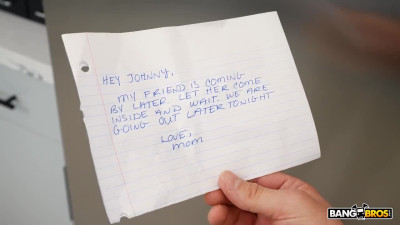 HEY JOHNNY,
MY FRIEND IS COMING
BY LATER. LET HER COME
INSIDE AND WAIT. WE ARE
GOING OUT LATER TONIGHT
LOVE,
MOM
BANGBROS.COM